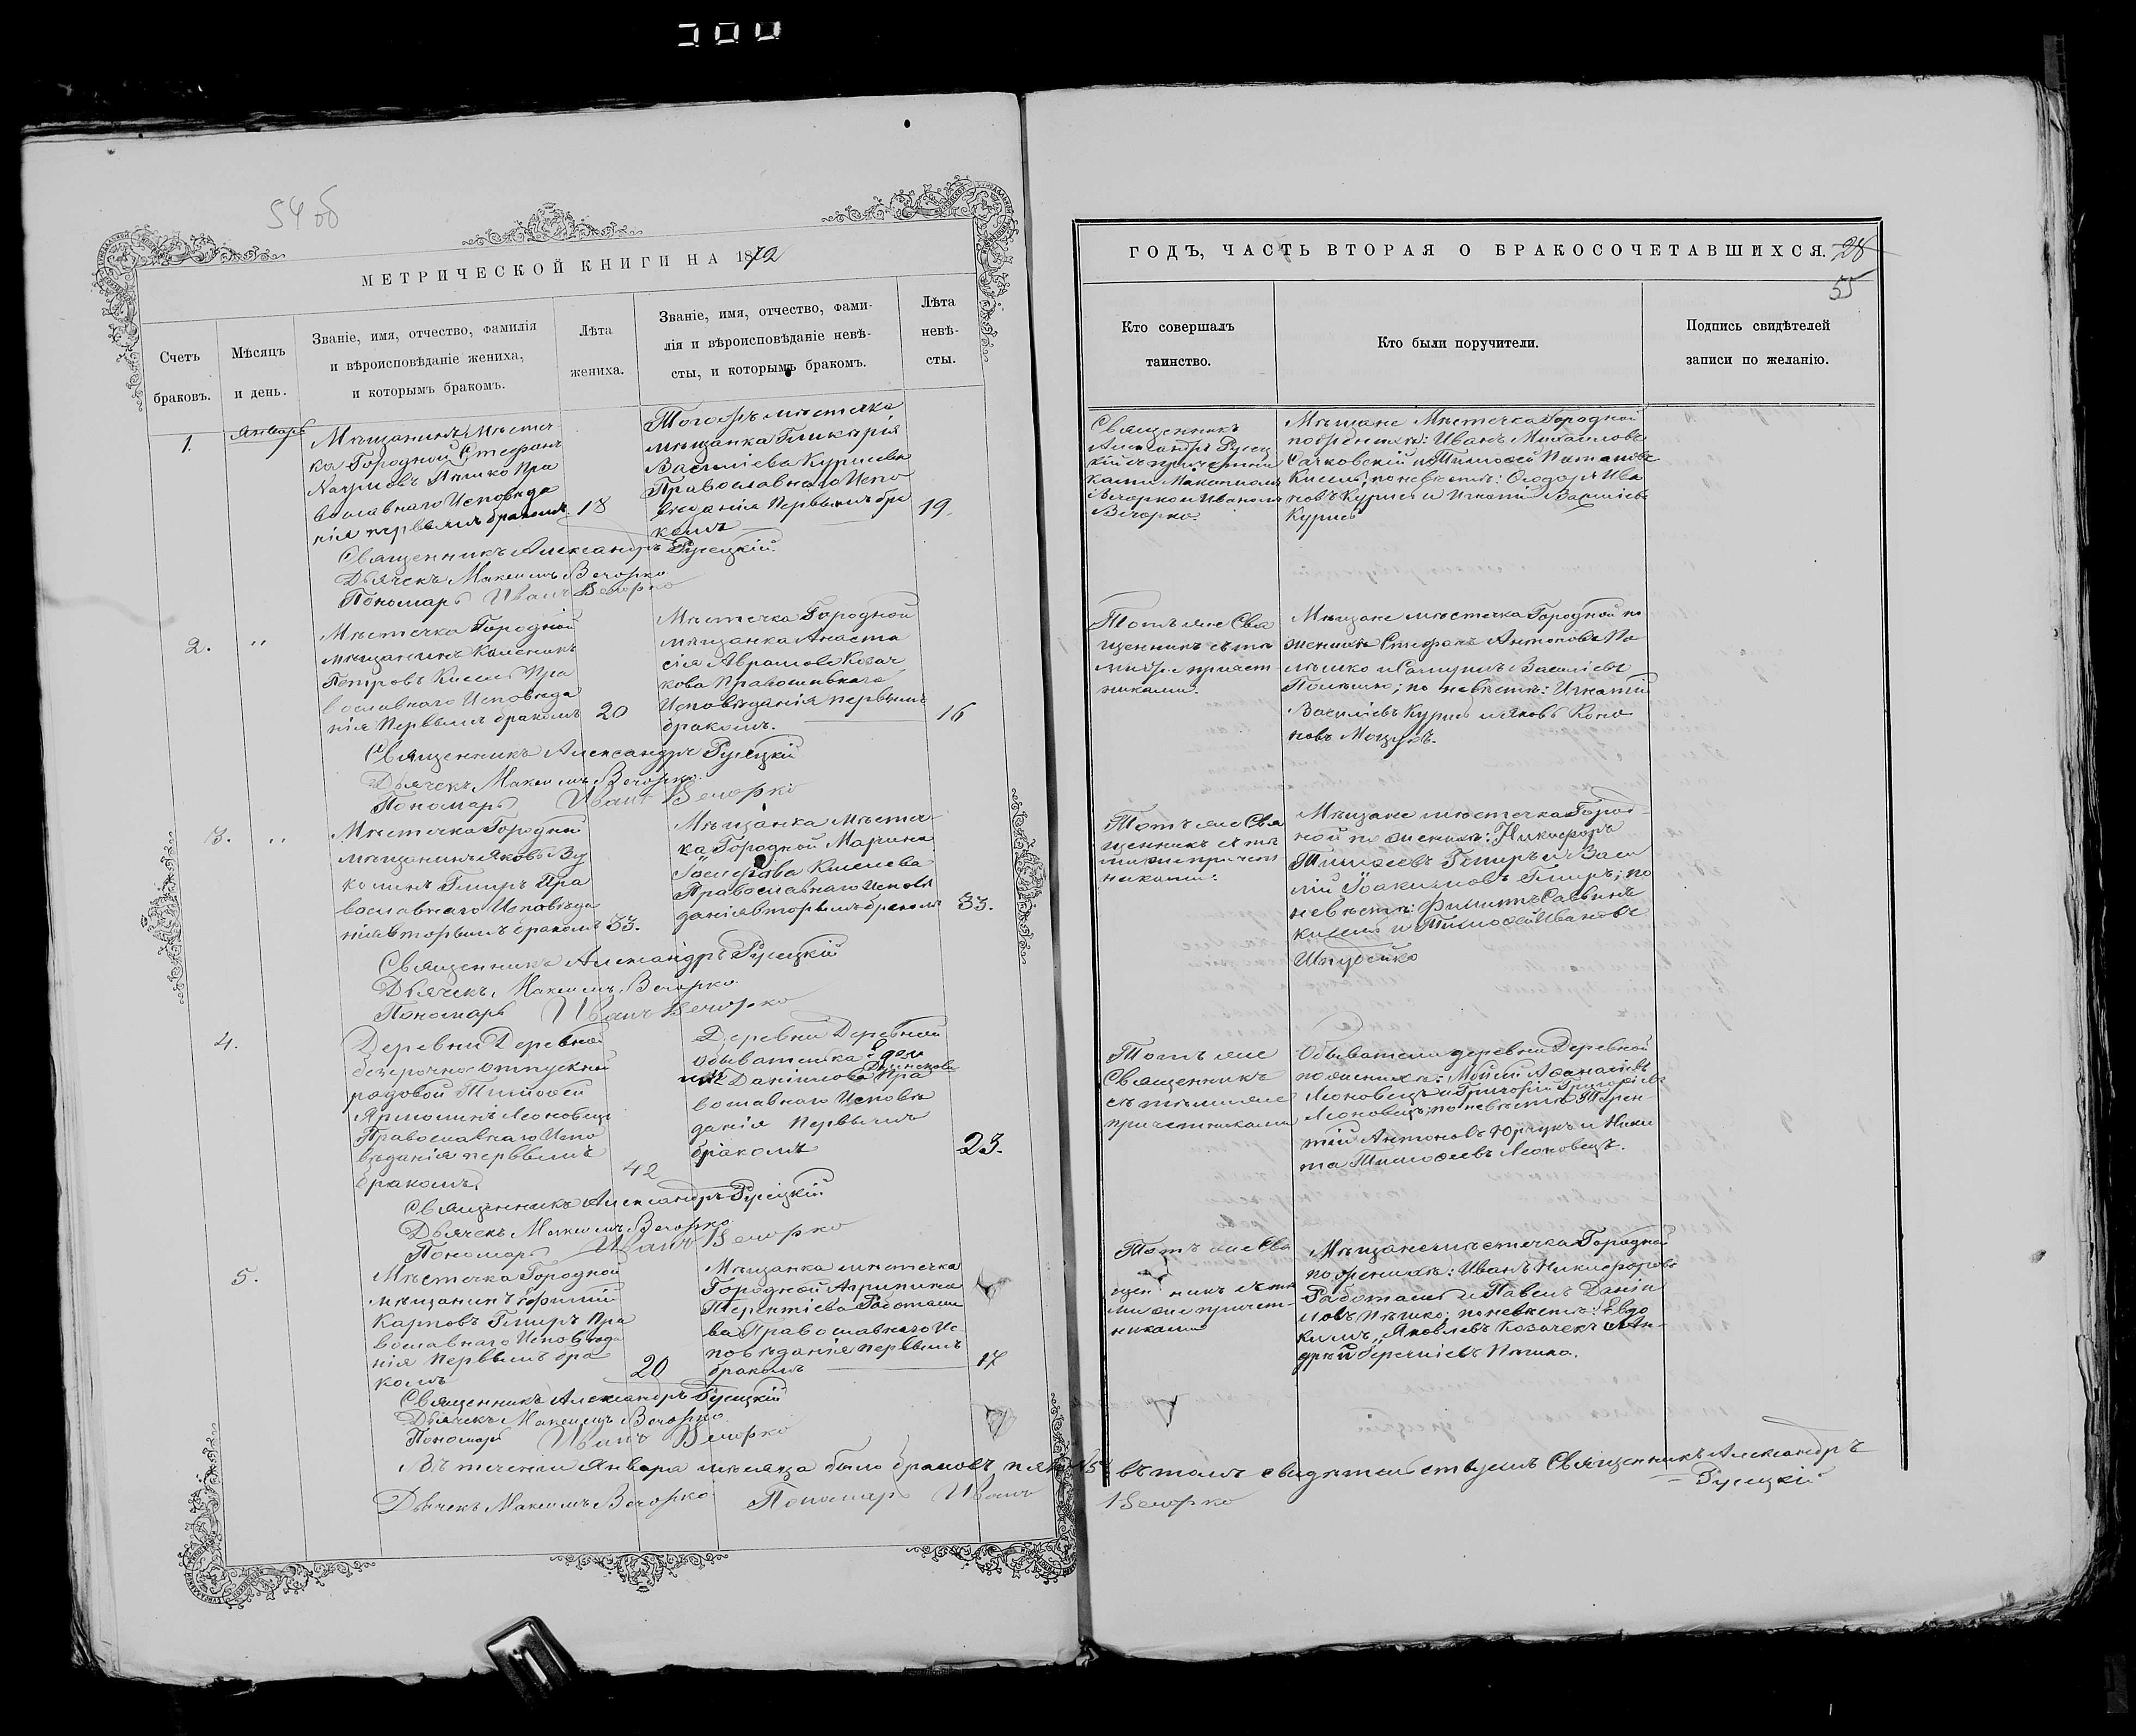 54 об
МЕТРИЧЕСКОЙ КНИГИ НА 1872
Счетъ
браковъ.
Мѣсяцъ
и день.
Званіе, имя, отчество, фамилія
и вѣроисповѣданіе жениха,
и которымъ бракомъ.
Лѣта
жениха.
Званіе, имя, отчество, фами-
лія и вѣроисповѣданіе невѣ-
сты, и которымъ бракомъ.
Лѣта
невѣ-
сты.
1.
Январь
Мѣщанинъ Мѣстеч
ка Городной Стефанъ
Наумовъ Пра
вославнаго Исповѣда
нія первымъ бракомъ
18
Тогожъ мѣстечка
мѣщанка Гликарія
Василіева Курисова
Православнаго Испо
вѣданія Первымъ бра
комъ
19
Священникъ Александръ Русецкій
Дьячекъ Максимъ Вечорко
Пономарь Иванъ Вечорко
2.
"
Мѣстечка Городной
мѣщанинъ Каленикъ
Петровъ Кисель Пра
вославнаго Исповѣда
нія Первымъ бракомъ
20
Мѣстечка Городной
мѣщанка Анаста
сія Аврамова Козач
кова Православнаго
Исповѣданія первымъ
бракомъ.
16
Священникъ Александръ Русецкій
Дьячекъ Максимъ Вечорко
Пономарь Иванъ Вечорко
3.
"
Мѣстечка Городной
мѣщанинъ Яковъ Ву
колинъ Гмиръ Пра
вославнаго Исповѣда
нія вторымъ бракомъ
33.
Мѣщанка Мѣстеч
ка Городной Марина
Киселева
Православнаго Исповѣ
данія вторымъ бракомъ
33.
Священникъ Александръ Русецкій
Дьячекъ Максимъ Вечорко
Пономарь Иванъ Вечорко
4.
Деревни Деревной
безсрочно отпускной
рядовой Тимофей
Ярмолинъ Леоновецъ
Православнаго Испо
вѣданія первымъ
бракомъ
42
Деревни Деревной
обывателька
Даніилова Пра
вославнаго Исповѣ
данія Первымъ
бракомъ
23.
Священникъ Александръ Русецкій
Дьячекъ Максимъ Вечорко
Пономарь Иванъ Вечорко
5.
Мѣстечка Городной
мѣщанинъ Ефимій
Карповъ Гмиръ Пра
вославнаго Исповѣда
нія Первымъ бра
комъ
20
Мѣщанка мѣстечка
Городной Агрипина
Терентіева Работаш
ва Православнаго Ис
повѣданія первымъ
бракомъ
17
Священникъ Александръ Русецкій
Дьячекъ Максимъ Вечорко
Пономарь Иванъ Вечорко
Въ теченіи Января мѣсяца было браковъ пять №5 въ томъ свидѣтельствуемъ Священникъ Александръ
Русецкій
Дьячекъ Максимъ Вечорко Пономарь Иванъ Вечорко
ГОДЪ, ЧАСТЬ ВТОРАЯ О БРАКОСОЧЕТАВШИХСЯ.
28
55
Кто совершалъ
таинство.
Кто были поручители.
Подпись свидѣтелей
записи по желанію.
Священникъ
Александръ Русец
кій съ причетни
ками Максимомъ
Вечоркомъ и Иваномъ
Вечорко.
Мѣщане Мѣстечка Городной
по женихѣ: Иванъ Михаиловъ
Сачковскій и Тимофей Потаповъ
Кисель; по невѣстѣ: Ѳеодоръ Ива
новъ Курисъ и Игнатій Василіевъ
Курисъ
Тотъ же Свя
щенникъ съ тѣ
миже причет
никами.
Мѣщане мѣстечка Городной по
женихѣ Стефанъ Антоновъ По
лѣшко и Самуилъ Василіевъ
Полѣшко; по невѣстѣ: Игнатій
Василіевъ Курисъ и Яковъ Коно
новъ Мощукъ.
Тотъ же Свя
щенникъ съ тѣ
миже причет
никами.
Мѣщане мѣстечка Город-
ной по женихѣ: Никифоръ
Тимофеевъ Гмиръ и Васи
лій Іоакимовъ Гмиръ; по
невѣстѣ: Филипъ Саввинъ
Кисель и Тимофей Ивановъ
Шпудейко
Тотъ же
Священникъ
съ тѣмиже
причетниками
Обыватели деревни Деревной
по женихѣ: Мойсей Аѳанасіевъ
Леоновецъ и Григорій Григоріевъ
Леоновецъ; по невѣстѣ Терен-
тій Антоновъ Юрчукъ и Ники
та Тимофеевъ Леоновецъ.
Тотъ же Свя
щенникъ съ тѣ
миже причет-
никами
Мѣщане мѣстечка Городной
по женихѣ: Иванъ Никифоровъ
Работашъ и Павелъ Даніи
ловъ Пѣшко; по невѣстѣ: Евдо
кимъ Яковлевъ Козачекъ и Ан-
дрей Пѣшко.